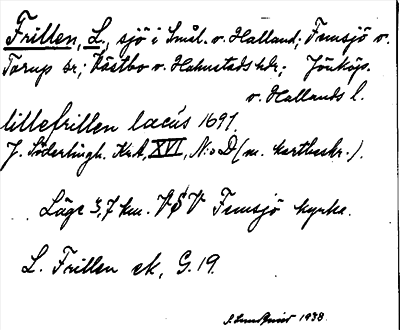 Frillen, L., sjö i Smål. o. Halland; Femsjö o.
Torup sr; Västbo o. Halmstads hdr; Jönköp.
o. Hallands l.
lillefrillen lacús 1697.
J. Söderlingh. Kr.A, XVI, N:o D (m. kartbeskr.).
Läge 3,7 km. VSV Femsjö kyrka.
L. Frillen ek, G. 19.
1938